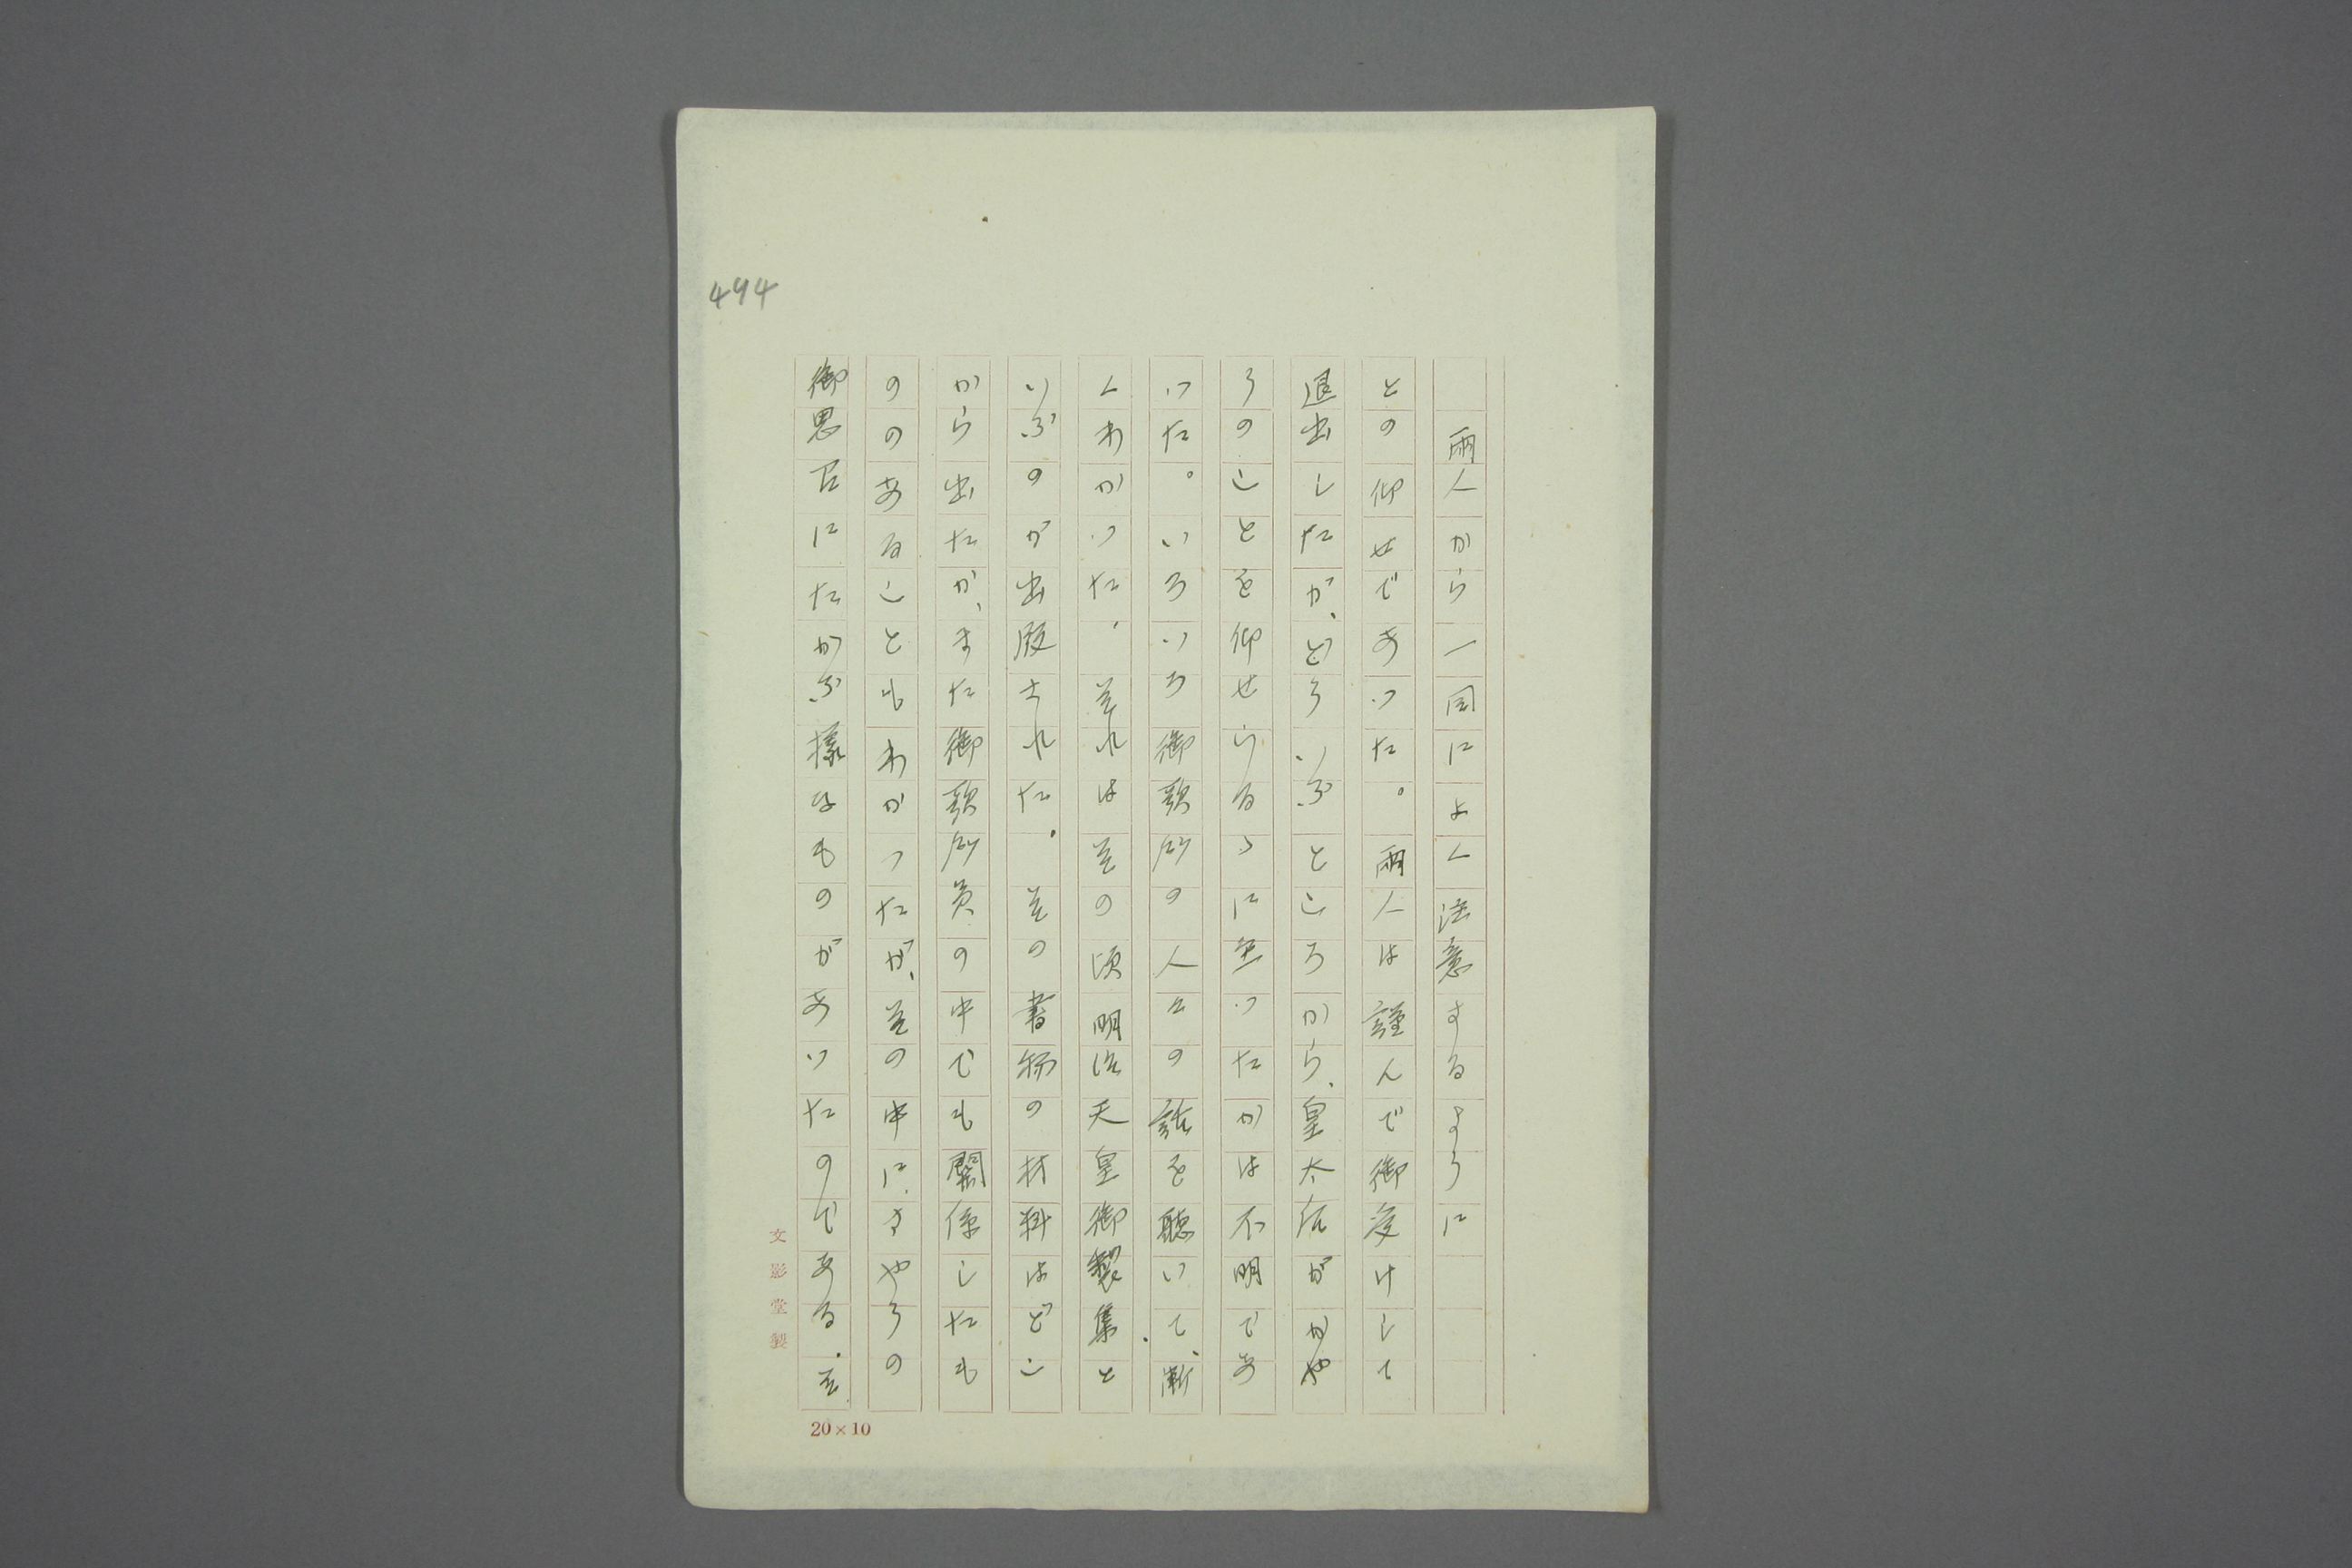 494
両人から一同によく注意するように
との仰せであつた。両人は謹んで御受けして
退出したが、どういふところから、皇太后がかや
うのことを仰せらるゝに至つたかは不明であ
つた。いろいろ御歌所の人々の話を聴いて、漸
くわかつた。それはその頃明治天皇御製集と
いふのが出版された。その書物の材料はどこ
から出たか、また御歌所員の中でも関係したも
ののあることもわかつたが、その中に、さやうの
御思召にたがふ様なものがあつたのである。そ
文影堂製
20×10